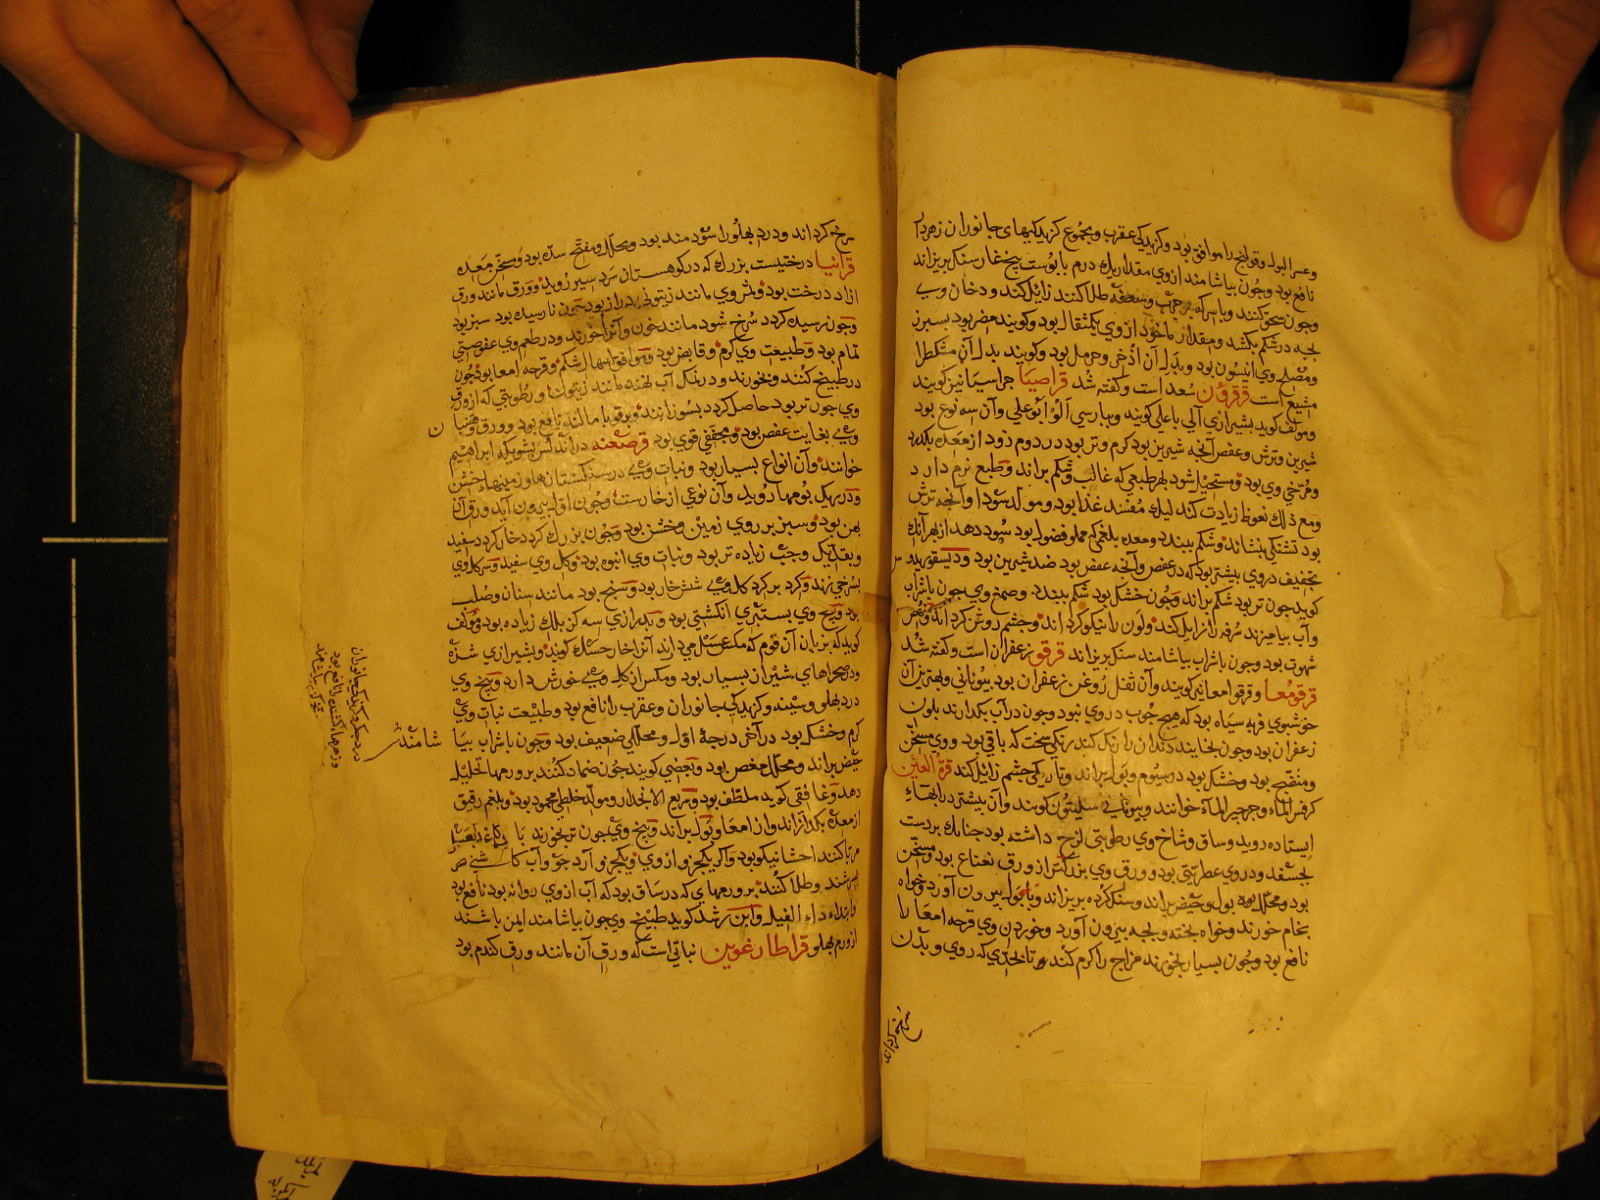 وعسر البول وقولنج را موافق بود وگزیدگی عقرب و مجموع گزیدگیهای جانوران زهردار
نافع بود وچون بیاشامند از وی مقدار یک درم با پوست بیخ غار سنگ بریزاند
وچون سحق کنند وبا سرکه بر جرب وسعفه طلا کنند زائل کند ودخان وی
بچه در شکم بکشد ومقدار ماخوذ از وی یکمثقال بود وگویند مضر بود بسپرز
ومصلح وی انیسون بود وبدل آن اذخر وحرمل بود وگویند بدل آن مشکطرا
مشیع است قرقرون سعد است وگفته شد قراصیا جراسیا نیز گویند
ومولف گوید بشیرازی آلی باعلی گویند وبپارسی آلو ابوعلی وآن سه نوع بود
شیرین وترش وعفص آنچه شیرین بود گرم وتر بود در دوم زود از معده بگذرد
ومرخی وی بود ومستحیل شود بهر طبعی که غالب وشکم براند وطبع نرم دارد
ومع ذلک نعوظ زیادت کند لیک مفسد غذا بود ومولد سودا وآنچه ترش
بود تشنگی بنشاند وشکم ببندد ومعده بلغمی که مملو فضول بود سود دهد از بهر آنک
تجفیف در وی بیشتر بود که در عفص وآنچه عفص بود ضد شیرین بود ودیسقوریدس
گوید چون تر بود شکم براند وچون خشک بود شکم ببندد وصمغ وی چون با شراب
وآب بیامیزند سرفه را زایل کند ولون را نیکو گرداند وچشم روشن گرداند ومنهض
شهوت بود وچون با شراب بیاشامند سنگ بریزاند قرقو زعفران است وگفته شد
قرقومغما وقرقوامعا نیز گویند وآن ثفل روغن زعفران بود بیونانی وبهترین آن
خوشبوی فربه سیاه بود که هیچ چوب در وی نبود وچون در آب بگدازند بلون
زعفران بود وچون بخایند دندان را رنگ کند رنگی سخت که باقی بود و وی مسخن
ومنضج بود وخشک بود در سیوم وبول براند وتاریکی چشم زائل کند قرة العین
کرفس الماء وجرجیر الماء خوانند وبیونانی سلینون گویند وآن بیشتر در آبهاء
ایستاده روید وساق وشاخ وی رطوبتی لزج داشته بود چنانک بر دست
بچسفد ودر وی عطریتی بود وورق وی بزرگتر از ورق نعناع بود ومسخن
بود ومحلل بود بول وحیض براند وسنگ گرده بریزاند وببول بیرون آورد خواه
بخام خورند وخواه بپخته وبچه بیرون آورد وخوردن وی قرحه امعا را
نافع بود وچون بسیار بخورند مزاج را گرم کند تا بحدی که روی وبدن
سرخ گرداند
سرخ گرداند ودرد پهلو را سودمند بود ومحلل ومفتح سده بود ومسخن معده
قرانیا درختیست بزرک که در کوهستان سرد سیر روید وورق مانند ورق
ازاد درخت بود وثمر وی مانند زیتونی دراز بود چون نارسیده بود سبز بود
وچون رسیده گردد سرخ شود مانند خون وآنرا خورند ودر طعم وی عفوصتی
تمام بود وطبیعت وی گرم وقابض بود وموافق اسهال شکم وقرحه امعا بود چون
در طبیخ کنند وبخورند ودر نمک آب نهند مانند زیتون ورطوبتی که از ورق
وی چون تر بود حاصل گردد بسوزانند وبرقوبا مالند نافع بود وورق وقضبان
وی بغایت عفص بود ومجفف قوی بود قرصعنه در اندلس بشویکه ابراهیم
خوانند وآن انواع بسیار بود ونبات وی در سنگستانها وزمینهاء خشن
ودر ریگ بومها روید وآن نوعی از خارست وچون اول بیرون آید ورق آن
پهن بود وسبز بر روی زمین وخشن بود وچون بزرک گردد خار گردد سفید
وبقدر یک وجب زیاده تر بود ونبات وی انبوه بود وگل وی سفید وساق وی
بسرخی زند وگرد بر گرد گل وی شش خار بود وسبج بود مانند سنان وصلب
بود وبیخ وی بستبری انگشتی بود وبدرازی سه گز بلک زیاده بود ومولف
گوید که بزبان آن قوم که مگس عسل می دارند آنرا خار حسک گویند وبشیرازی شزه
ودر صحراهای شیراز بسیار بود ومگس از گل وی خورش دارد وبیخ وی
درد پهلو وسینه وگزیدگی جانوران وعقرب را نافع بود وطبیعت نبات وی
گرم وخشک بود در آخر درجهٔ اول ومحللی ضعیف بود وچون با شراب بیا شامند
حیض براند ومحلل مغص بود وبعضی گویند چون ضماد کنند بر ورمها تحلیل
دهد وغافقی گوید ملطف بود وسریع الانحدار ومولد خلطی محمود بود وبلغم رقیق
از معده بگدازاند واز امعا وبول براند وبیخ وی چون تر بخورند یا
مربا کنند احشا نیکو بود واگر یکجزو از وی ویکجزو آرد جو وآب کاسنی
بسرشند وطلا کنند بر ورمهای که در ساق بود که آب از وی روانه بود نافع بود
وابتداء داء الفیل وابن رشد گوید طبیخ وی چون بیاشامند ایمن باشند
از ورم پهلو قراطارغوین نباتی است که ورق آن مانند ورق گندم بود
درد جگر وگزیدگی جانوران
وزهرهاء کشنده را نافع بود